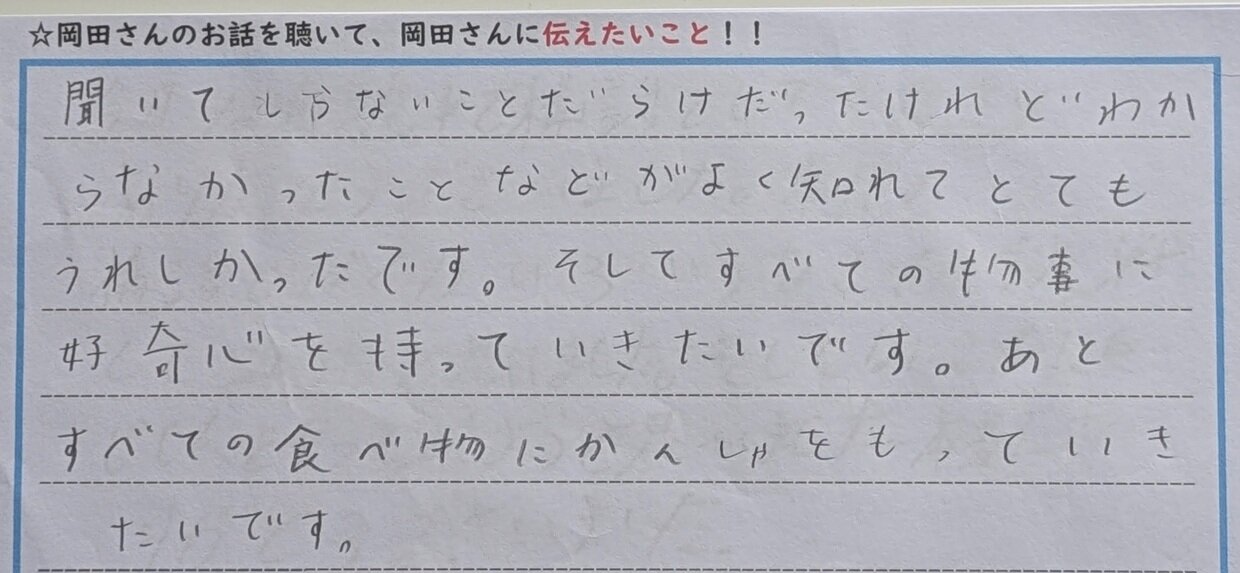 ☆岡田さんのお話を聴いて、岡田さんに伝えたいこと!!
聞いてしらないことだらけだったけれどわか
らなかったことなどがよく知れてとても
うれしかったです。そしてすべての物事に
好奇心を持っていきたいです。あと
すべての食べ物にかんしゃをもっていき
たいです。